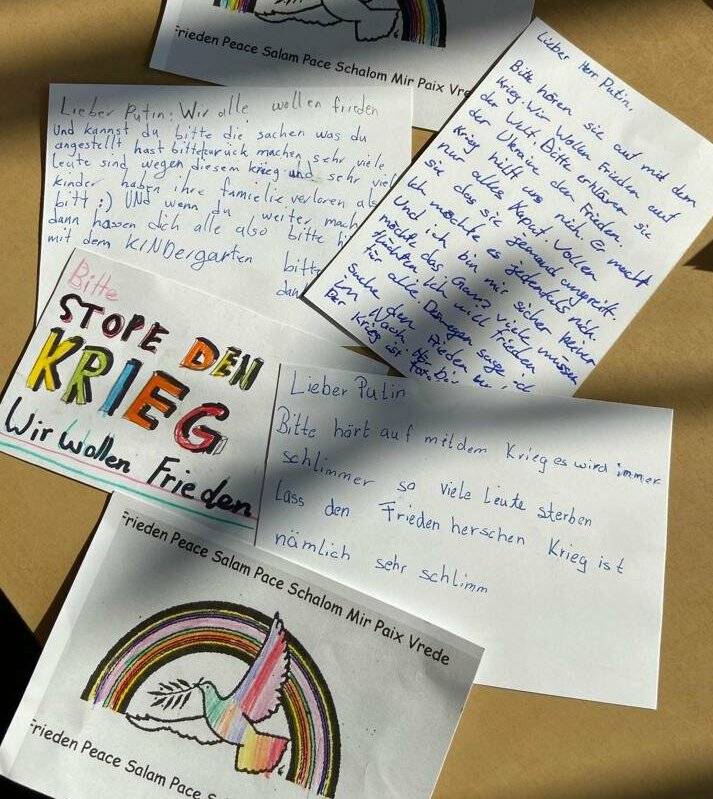 Frieden Peace Salam Pace Schalom Mir Paix Vre
Lieber Putin: Wir alle wollen frieden
Und kannst du bitte die sachen was du
angestellt hast bitte zurück machen sehr viele
leute sind wegen diesem krieg und sehr viel
kinder haben ihre famielie verloren als
bitt :) UND wenn du weiter mach
dann hassen dich alle also bitte
mit dem KINDergarten bitt
dan
Lieber Herr Putin,
Bitte hören sie auf mit dem
Krieg. Wir wollen Frieden auf
der Welt. Bitte erklären sie
der Ukrain den Frieden.
Krieg hilft uns nich. Er macht
nur alles Kaput. Wollen
sie das sie jemand angreift.
Ich möchte es jedenfals nich.
Und ich bin mir sicher keiner
möchte das. Ganz viele müssen
flüchten. Ich will Frieden
für alle. Deswegen sage ich
Suche den Frieden
Der Krieg ist
Bitte
STOPE DEN
KRIEG
Wir wollen Frieden
Lieber Putin
Bitte hört auf mit dem Krieg es wird immer
schlimmer so viele Leute sterben
Lass den Frieden herschen Krieg ist
nämlich sehr schlimm
Frieden Peace Salam Pace Schalom Mir Paix Vrede
Frieden Peace Salam Pace S